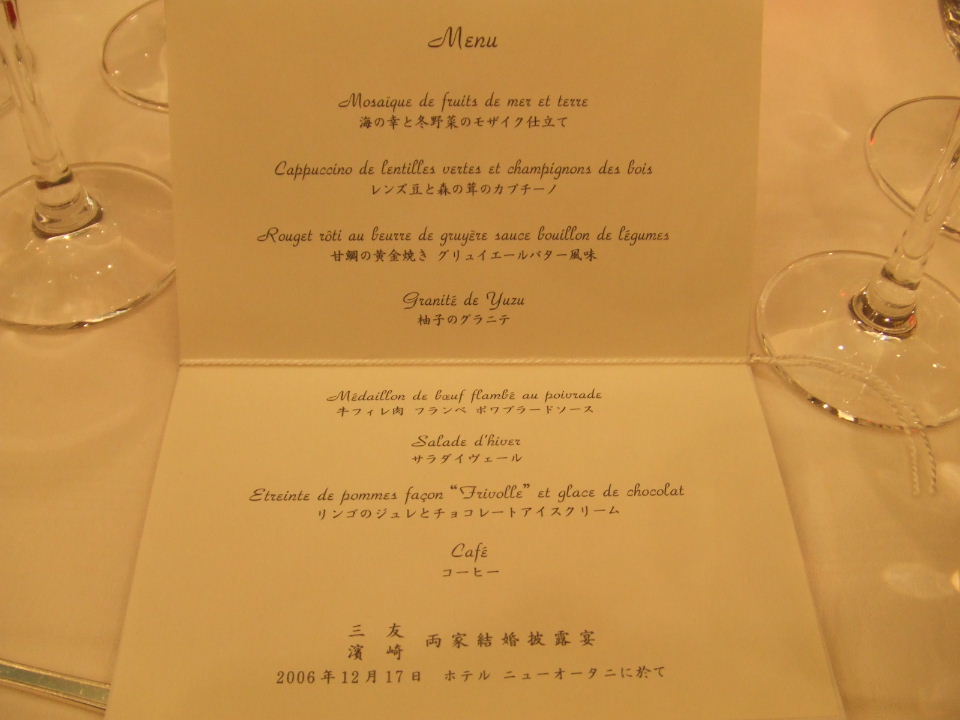 Menu
Mosaïque de fruits de mer et terre
海の幸と冬野菜のモザイク仕立て
Cappuccino de lentilles vertes et champignons des bois
レンズ豆と森の茸のカプチーノ
Rouget rôti au beurre de gruyère sauce bouillon de légumes
甘鯛の黄金焼き グリュイエールバター風味
Granité de Yuzu
柚子のグラニテ
Médaillon de bœuf flambé au poivrade
牛フィレ肉 フランベ ポワブラードソース
Salade d'hiver
サラダイヴェール
Etreinte de pommes façon “Frivolle” et glace de chocolat
リンゴのジュレとチョコレートアイスクリーム
Café
コーヒー
三友
濱崎
両家結婚披露宴
2006年12月17日 ホテル ニューオータニに於て